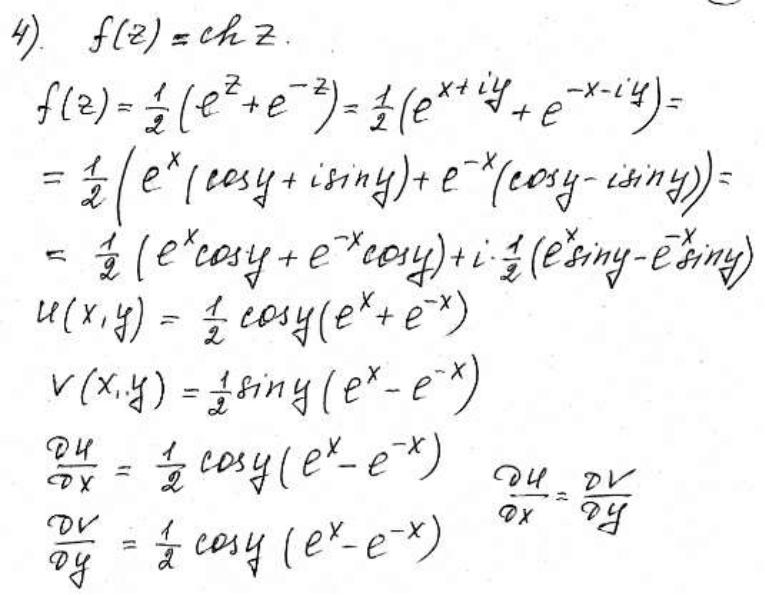 4). f(z) = ch z.
f(z) = 1/2 (e^z + e^{-z}) = 1/2 (e^{x+iy} + e^{-x-iy}) =
= 1/2 (e^x (cosy + isiny) + e^{-x} (cosy - isiny)) =
= 1/2 (e^x cosy + e^{-x} cosy) + i · 1/2 (e^x siny - e^{-x} siny)
u(x,y) = 1/2 cosy (e^x + e^{-x})
v(x,y) = 1/2 siny (e^x - e^{-x})
∂u/∂x = 1/2 cosy (e^x - e^{-x})
∂v/∂y = 1/2 cosy (e^x - e^{-x})
∂u/∂x = ∂v/∂y